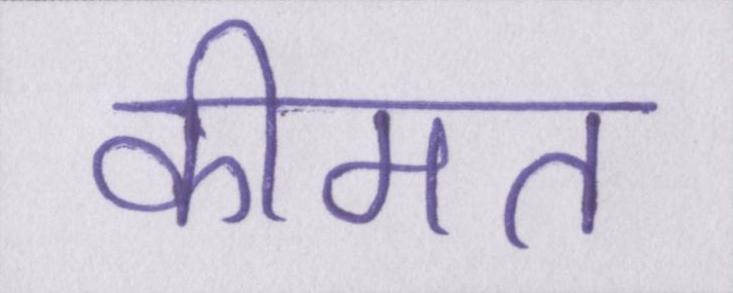 कीमत